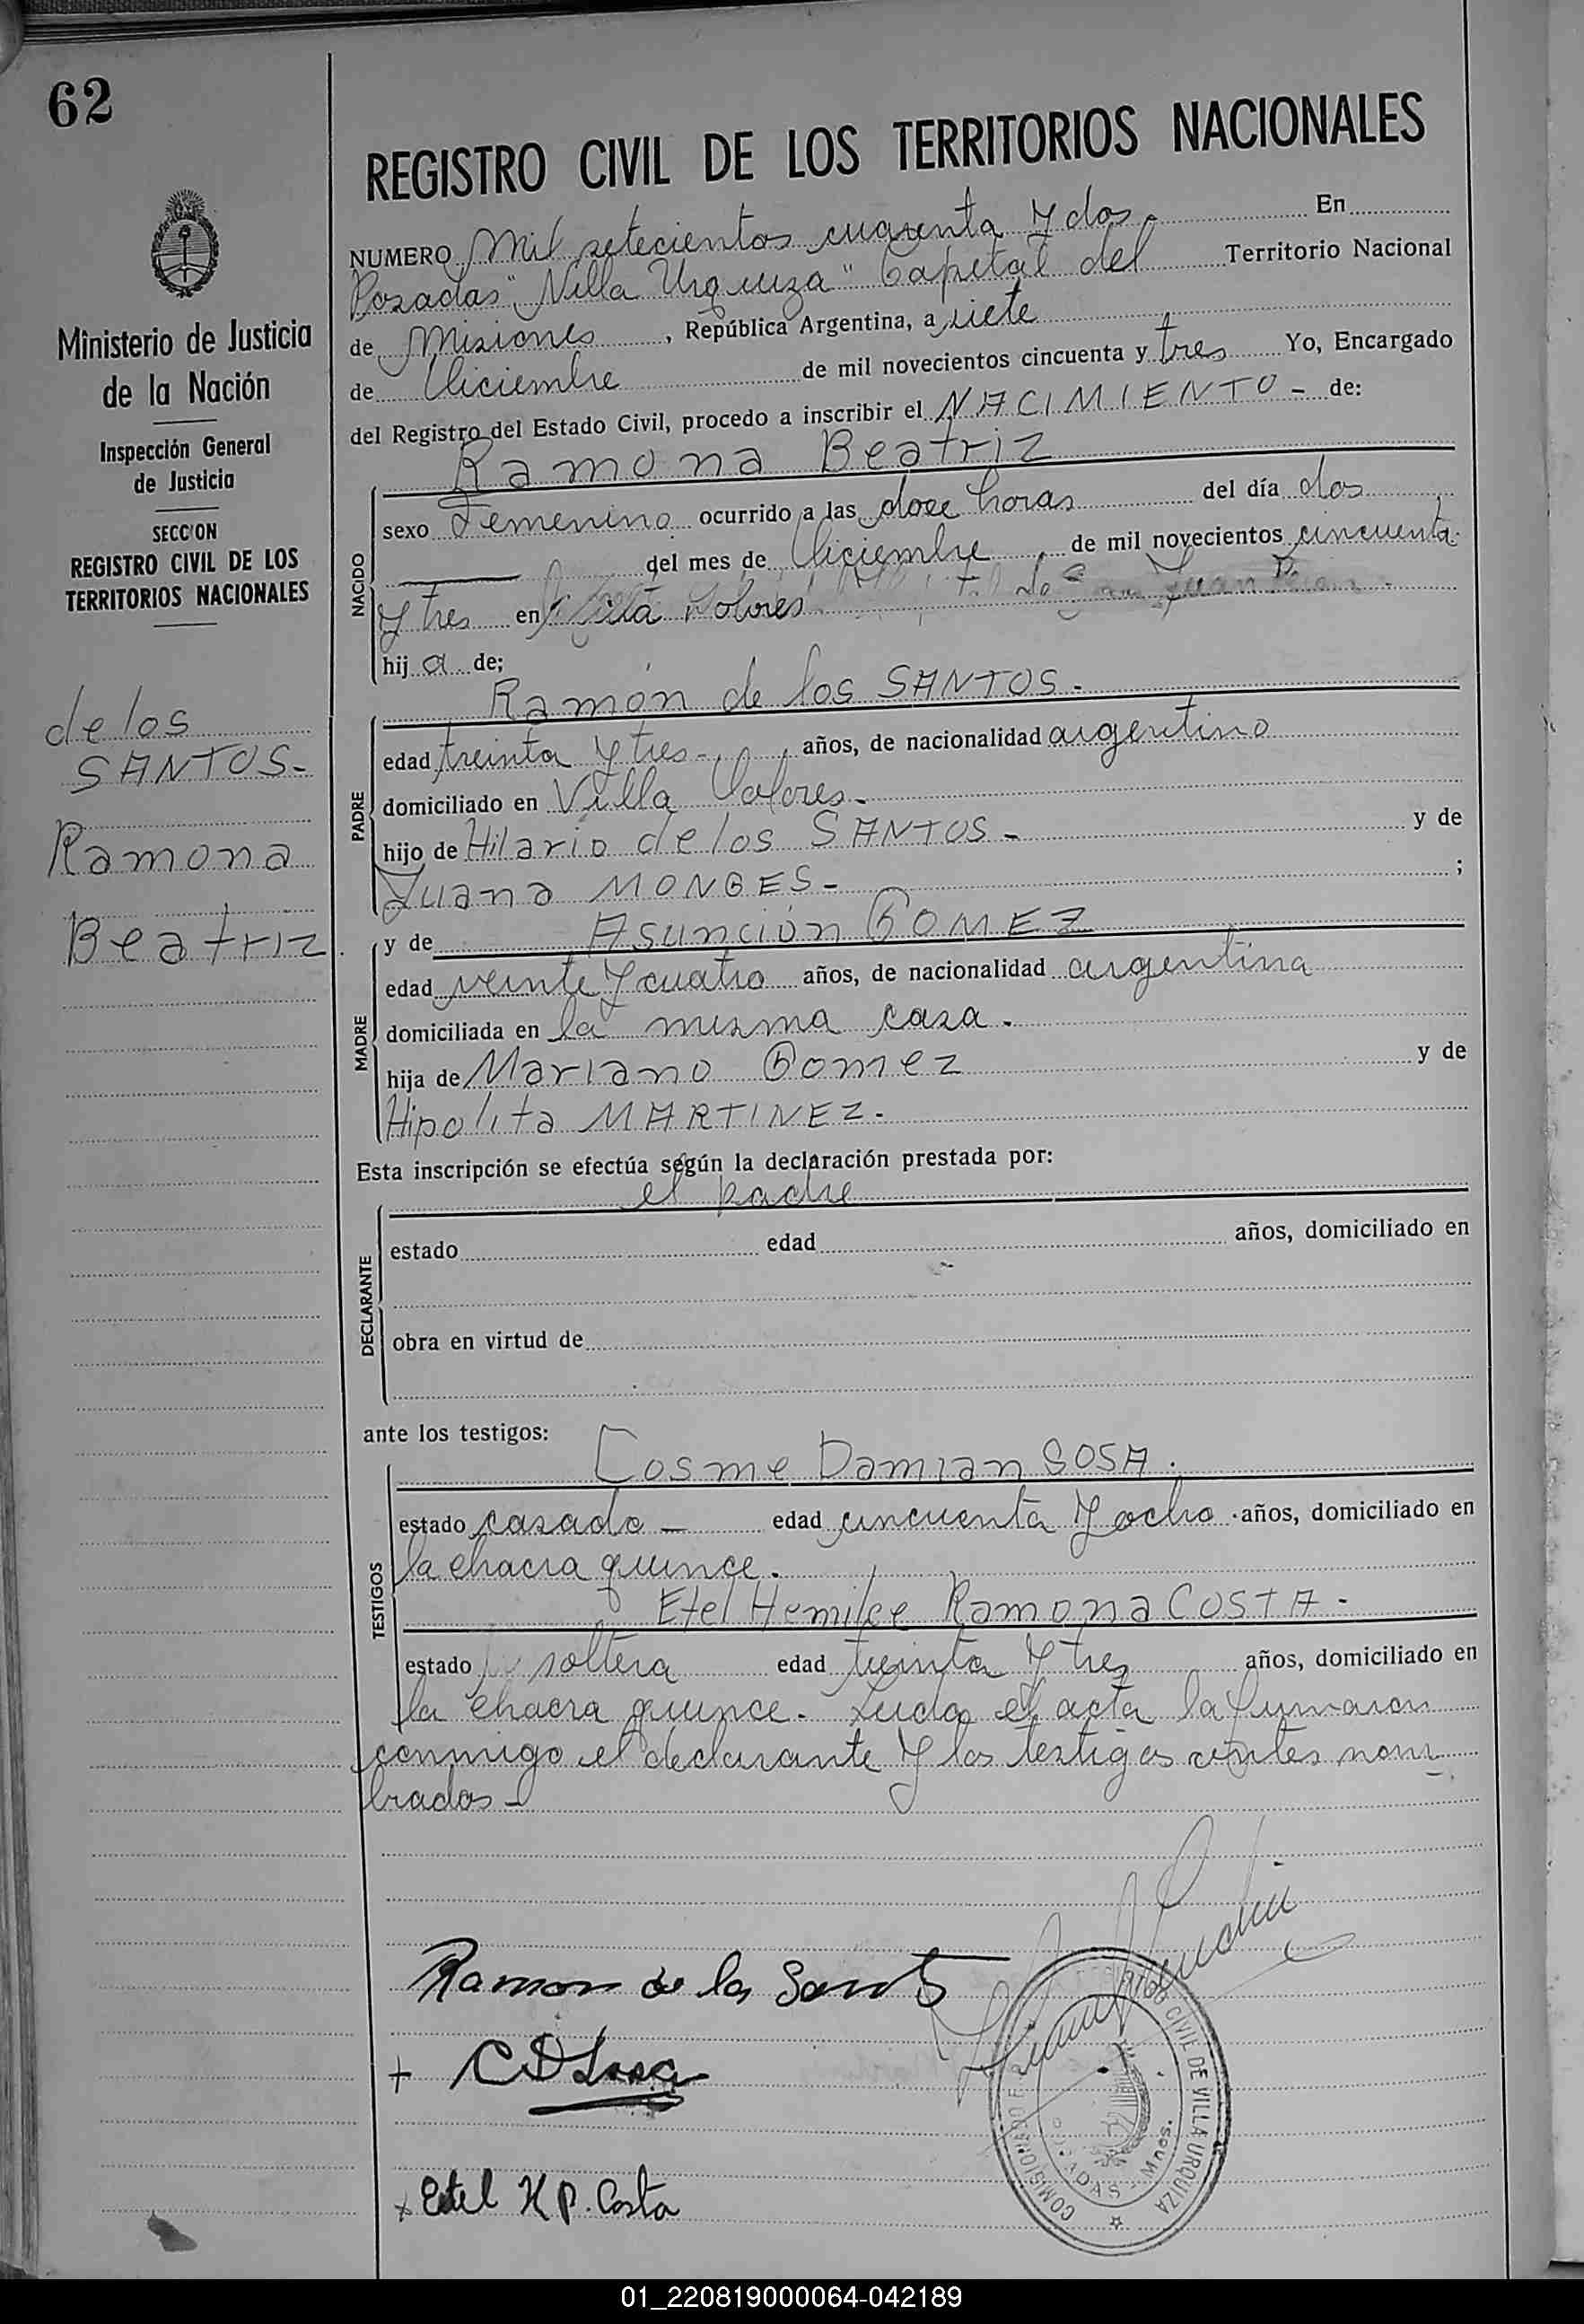 62
Ministerio de Justicia
de la Nación
Inspección General
de Justicia
SECCION
REGISTRO CIVIL DE LOS
TERRITORIOS NACIONALES
de los
SANTOS-
Ramona
Beatriz
REGISTRO CIVIL DE LOS TERRITORIOS NACIONALES
NUMERO Mil setecientos cuarenta y dos. En
Posadas "Villa Urquiza" Capital del Territorio Nacional
de Misiones, República Argentina, a siete
de Diciembre de mil novecientos cincuenta y tres Yo, Encargado
del Registro del Estado Civil, procedo a inscribir el NACIMIENTO - de:
Ramona Beatriz
NACIDO
sexo Femenino ocurrido a las doce horas del día dos
del mes de Diciembre, de mil novecientos cincuenta
y tres en Villa Dolores
hija de;
Ramón de los SANTOS.-
PADRE
edad treinta y tres-, años, de nacionalidad argentino
domiciliado en Villa Dolores-
hijo de Hilario de los SANTOS- y de
Juana MONGES- ;
MADRE
y de Asunción GOMEZ
edad veinte y cuatro años, de nacionalidad argentina
domiciliada en la misma casa.
hija de Mariano Gomez y de
Hipolita MARTINEZ-
Esta inscripción se efectúa según la declaración prestada por:
el padre
DECLARANTE
estado edad años, domiciliado en
obra en virtud de
ante los testigos:
Cosme Damian SOSA.
TESTIGOS
estado casado - edad cincuenta y ocho años, domiciliado en
la chacra quince.
Etel Hemilce Ramona COSTA-
estado soltera edad treinta y tres años, domiciliado en
la chacra quince. Leida el acta la firmaron
conmigo el declarante y los testigos antes nom
brados-
Ramon de los Santos
+ C D Sosa
x Etel H R. Costa
CIVIL DE VILLA URQUIZA
POSADAS - Mnes.
01_220819000064-042189